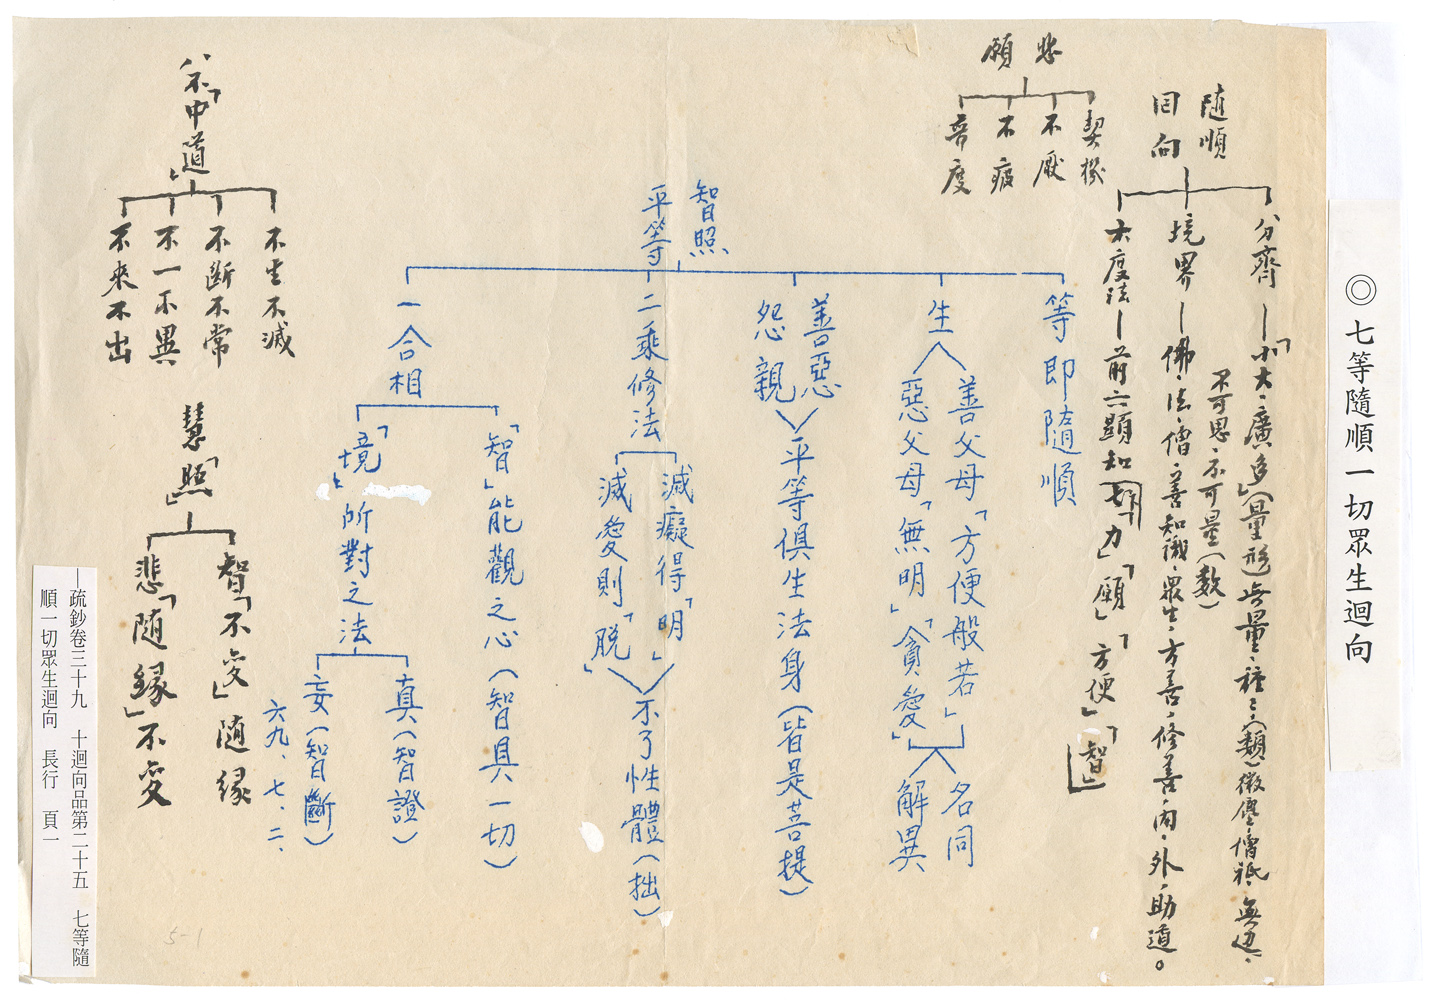 ◎七等隨順一切眾生迴向
隨順
回向
分齊—「小」大、廣多」(量形)無量、種種、(類)微塵、僧祇、無边、
不可思、不可量(数)
境界—佛、法、僧、善知識、眾生、方善、修善、內、外、助道。
大度法—前六顯知「力」「願」「方便」「智」
悲
願
契機
不厭
不疲
普度
智照
平等
等即隨順
生
善父母「方便般若」
惡父母「無明」「貪愛」
名同
解異
善惡
怨親
平等俱生法身(皆是菩提)
二乘修法
滅癡得「明」
滅愛則「脫」
不了性體(拙)
一合相
「智」能觀之心(智具一切)
「境」所對之法
真(智證)
妄(智斷)
六九、七、二、
八不「中道」
不生不滅
不斷不常
不一不異
不來不出
慧「照」
智「不变」随緣
悲「随緣」不变
—疏鈔卷三十九 十迴向品第二十五 七等隨
順一切眾生迴向 長行 頁一
5-1